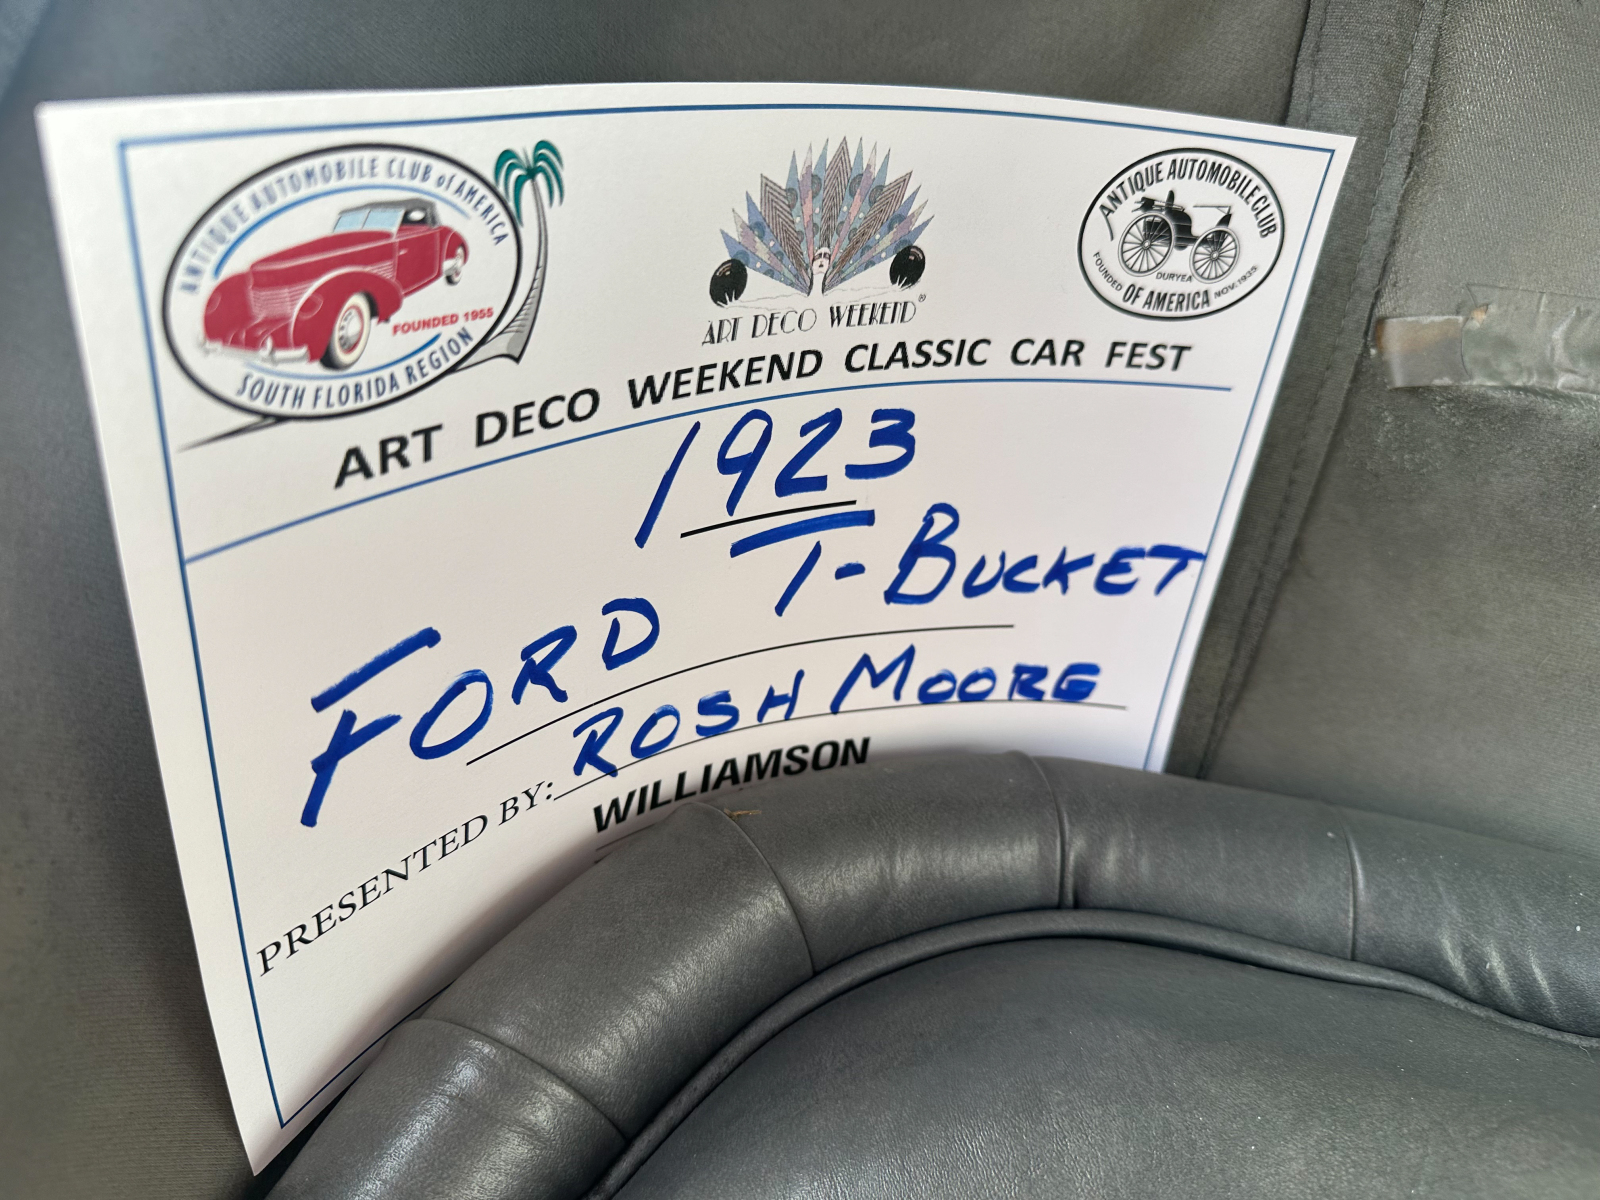 ANTIQUE AUTOMOBILE CLUB of AMERICA
FOUNDED 1955
SOUTH FLORIDA REGION
ART DECO WEEKEND®
ANTIQUE AUTOMOBILE CLUB
FOUNDED DURYEA NOV. 1935
OF AMERICA
ART DECO WEEKEND CLASSIC CAR FEST
1923
FORD T-BUCKET
PRESENTED BY: ROSH MOORE
WILLIAMSON